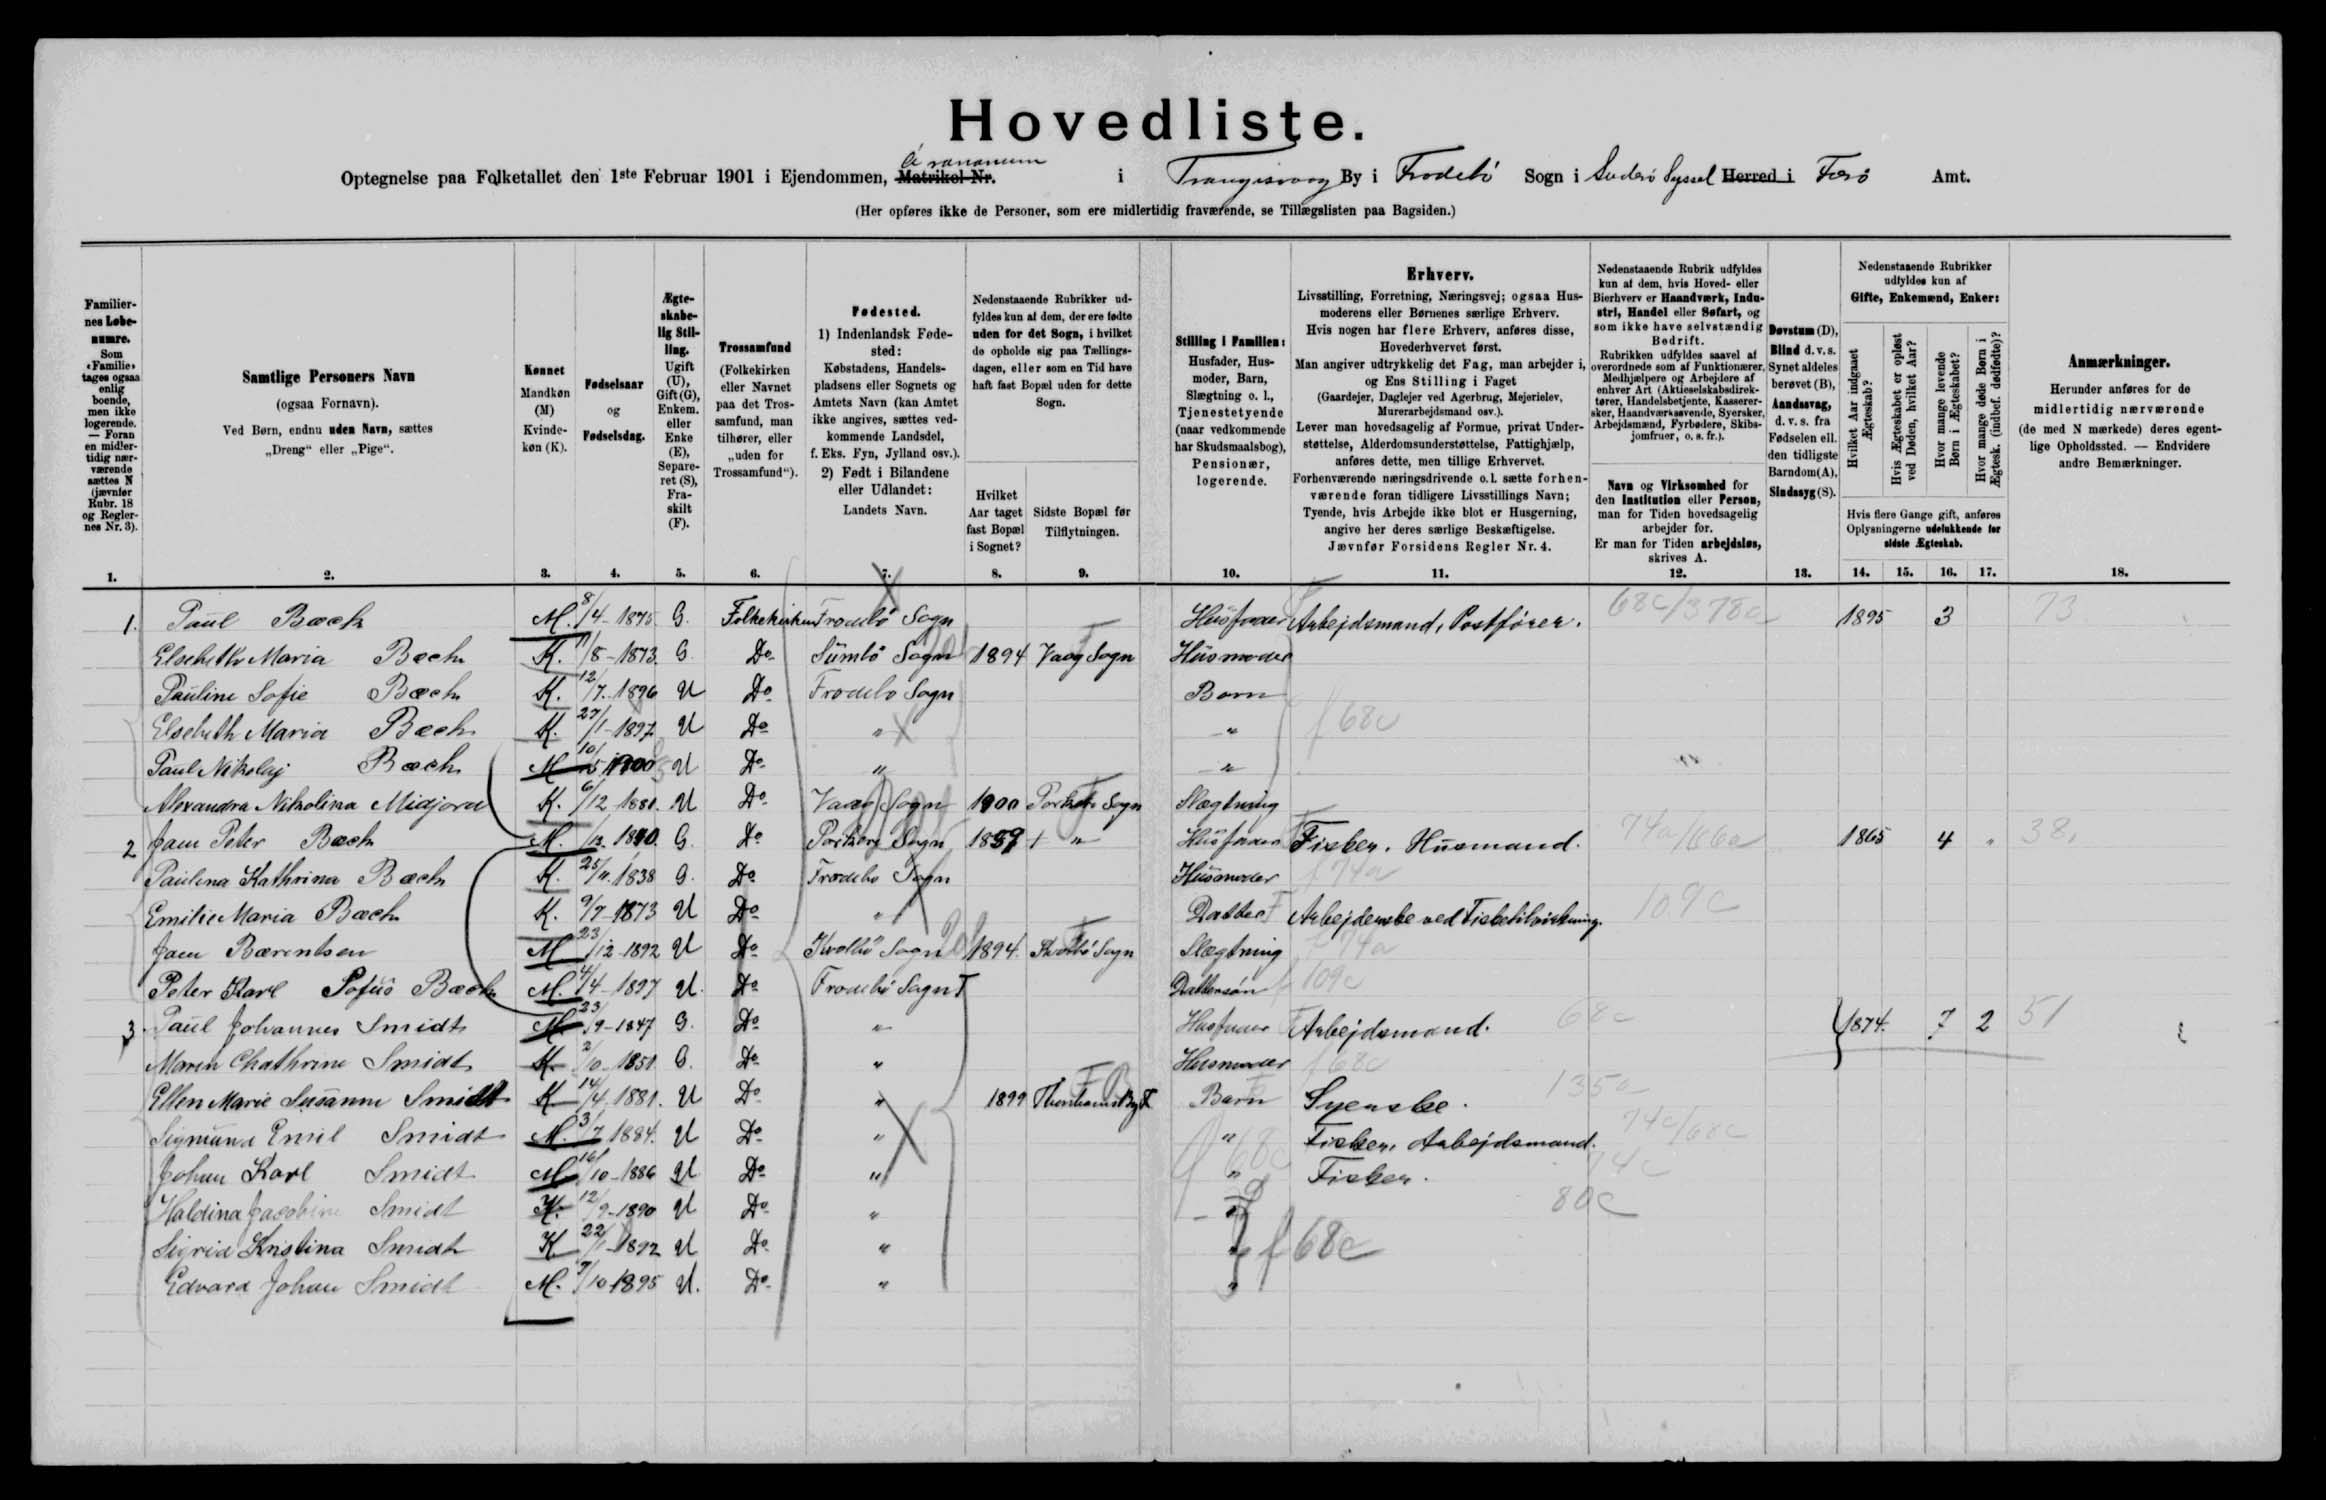 Hovedliste.
Optegnelse paa Folketallet den 1ste Februar 1901 i Ejendommen, Matrikel Nr. i Trangisvaag By i Frodebö Sogn i Suderö Syssel Herred i Færö Amt.
(Her opføres ikke de Personer, som ere midlertidig fraværende, se Tillægslisten paa Bagsiden.)
Familiernes Løbenumre.
Som «Familie» tages ogsaa enlig boende, men ikke logerende. — Foran en midlertidig nærværende sættes N (jævnfør Rubr. 18 og Reglernes Nr. 3).
1.
Samtlige Personers Navn
(ogsaa Fornavn).
Ved Børn, endnu uden Navn, sættes „Dreng“ eller „Pige“.
2.
Kønnet
Mandkøn (M) Kvindekøn (K).
3.
Fødselsaar og Fødselsdag.
4.
Ægteskabelig Stilling.
Ugift (U), Gift (G), Enkem. eller Enke (E), Separeret (S), Fraskilt (F).
5.
Trossamfund
(Folkekirken eller Navnet paa det Trossamfund, man tilhører, eller „uden for Trossamfund“).
6.
Fødested.
1) Indenlandsk Fødested:
Købstadens, Handelspladsens eller Sognets og Amtets Navn (kan Amtet ikke angives, sættes vedkommende Landsdel, f. Eks. Fyn, Jylland osv.).
2) Født i Bilandene eller Udlandet:
Landets Navn.
7.
Nedenstaaende Rubrikker udfyldes kun af dem, der ere fødte uden for det Sogn, i hvilket de opholde sig paa Tællingsdagen, eller som en Tid have haft fast Bopæl uden for dette Sogn.
Hvilket Aar taget fast Bopæl i Sognet?
8.
Sidste Bopæl før Tilflytningen.
9.
Stilling i Familien:
Husfader, Husmoder, Barn, Slægtning o. l., Tjenestetyende (naar vedkommende har Skudsmaalsbog), Pensionær, logerende.
10.
Erhverv.
Livsstilling, Forretning, Næringsvej; ogsaa Husmoderens eller Børnenes særlige Erhverv.
Hvis nogen har flere Erhverv, anføres disse, Hovederhvervet først.
Man angiver udtrykkelig det Fag, man arbejder i, og Ens Stilling i Faget
(Gaardejer, Daglejer ved Agerbrug, Mejerielev, Murerarbejdsmand osv.).
Lever man hovedsagelig af Formue, privat Understøttelse, Alderdomsunderstøttelse, Fattighjælp, anføres dette, men tillige Erhvervet.
Forhenværende næringsdrivende o. l. sætte forhenværende foran tidligere Livsstillings Navn;
Tyende, hvis Arbejde ikke blot er Husgerning, angive her deres særlige Beskæftigelse.
Jævnfør Forsidens Regler Nr. 4.
11.
Nedenstaaende Rubrik udfyldes kun af dem, hvis Hoved- eller Bierhverv er Haandværk, Industri, Handel eller Søfart, og som ikke have selvstændig Bedrift.
Rubrikken udfyldes saavel af overordnede som af Funktionærer, Medhjælpere og Arbejdere af enhver Art (Aktieselskabsdirektører, Handelsbetjente, Kasserersker, Haandværkssvende, Syersker, Arbejdsmænd, Fyrbødere, Skibsjomfruer, o. s. fr.).
Navn og Virksomhed for den Institution eller Person, man for Tiden hovedsagelig arbejder for.
Er man for Tiden arbejdsløs, skrives A.
12.
Døvstum (D), Blind d. v. s. Synet aldeles berøvet (B), Aandssvag, d. v. s. fra Fødselen ell. den tidligste Barndom (A), Sindssyg (S).
13.
Nedenstaaende Rubrikker udfyldes kun af Gifte, Enkemænd, Enker:
Hvilket Aar indgaaet Ægteskab?
Hvis Ægteskabet er opløst ved Døden, hvilket Aar?
Hvor mange levende Børn i Ægteskabet?
Hvor mange døde Børn i Ægtesk. (indbef. dødfødte)?
Hvis flere Gange gift, anføres Oplysningerne udelukkende for sidste Ægteskab.
14. 15. 16. 17.
Anmærkninger.
Herunder anføres for de midlertidig nærværende (de med N mærkede) deres egentlige Opholdssted. — Endvidere andre Bemærkninger.
18.
1. Paul Bæch M. 8/4-1875 G. Folkekirken Frodebö Sogn Husfader Arbejdsmand, Postfører. 68c/378a 1895 3 73
Elsebeth Maria Bæch K. 11/8-1873. G. Do Sumbö Sogn 1894 Vaag Sogn Husmoder
Pauline Sofie Bæch K. 12/7-1896 U Do Frodebo Sogn Barn
Elsebeth Maria Bæch K. 27/1-1897 U Do " " f 68c
Paul Nikolaj Bæch M 10/5 1900 U Do " "
Alexandra Nikolina Midjord K. 6/12 1880. U Do Vaag Sogn 1900 Porkere Sogn Slægtning
2 Jam Peter Bæch M. 1840. G. Do Porkere Sogn 1859 " Husfader Fisker. Husmand. 74a/66a 1865 4 " 38.
Paulina Kathrina Bæch K. 25/11-1838 G. Do Frodebo Sogn Husmoder f 74a
Emilie Maria Bæch K. 9/7-1873 U Do " Datter Arbejderske ved Fisketilvirkning. 109c
Jam Bærentsen M 23/12-1892 U Do Kvalbö Sogn 1894. Kvalbö Sogn Slægtning f 74a
Peter Karl Sofus Bæch M. 4/4-1897 U. Do Frodebö Sogn Dattersön f 109c
3 Paul Johannes Smidt M. 23/9-1847 G. Do " Husfader Arbejdsmand. 68c 1874. 7 2 51
Maren Chathrine Smidt K. 2/10-1851 G. Do " Husmoder f 68c
Ellen Marie Susanne Smidt K. 14/4 1881. U Do " 1899 Thorshavns By Barn Syerske. 135a
Sigmund Emil Smidt M. 3/7 1884. U Do " " Fisker, Arbejdsmand. 74c/68c
Johan Karl Smidt M 16/10-1886 U Do " " Fisker. 74c
Haldina Jacobine Smidt K. 12/9-1890 U Do " " 80c
Sigrid Kristina Smidt K 22/1-1892 U Do " " f 68c
Edvard Johan Smidt M. 9/10-1895 U. Do " "